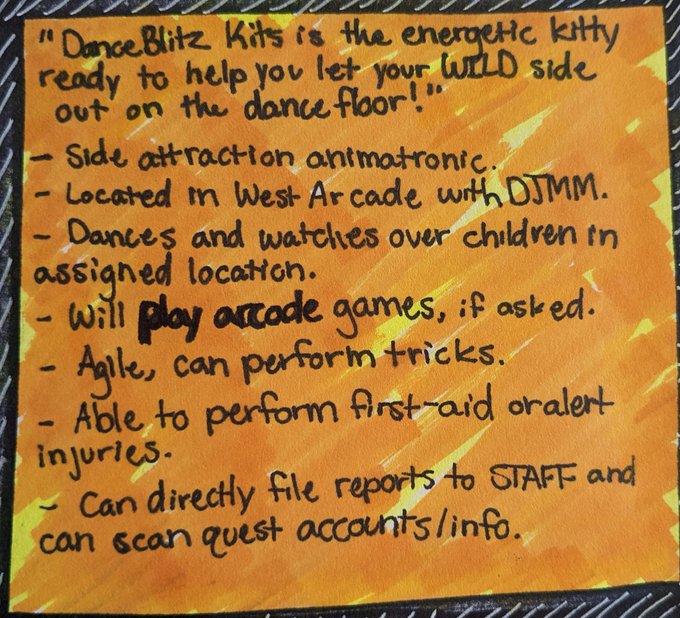 "DanceBlitz Kits is the energetic kitty
ready to help you let your WILD side
out on the dance floor!"
- Side attraction animatronic.
- Located in West Arcade with DJMM.
- Dances and watches over children in
assigned location.
- Will play arcade games, if asked.
- Agile, can perform tricks.
- Able to perform first-aid or alert
injuries.
- Can directly file reports to STAFF and
can scan quest accounts/info.